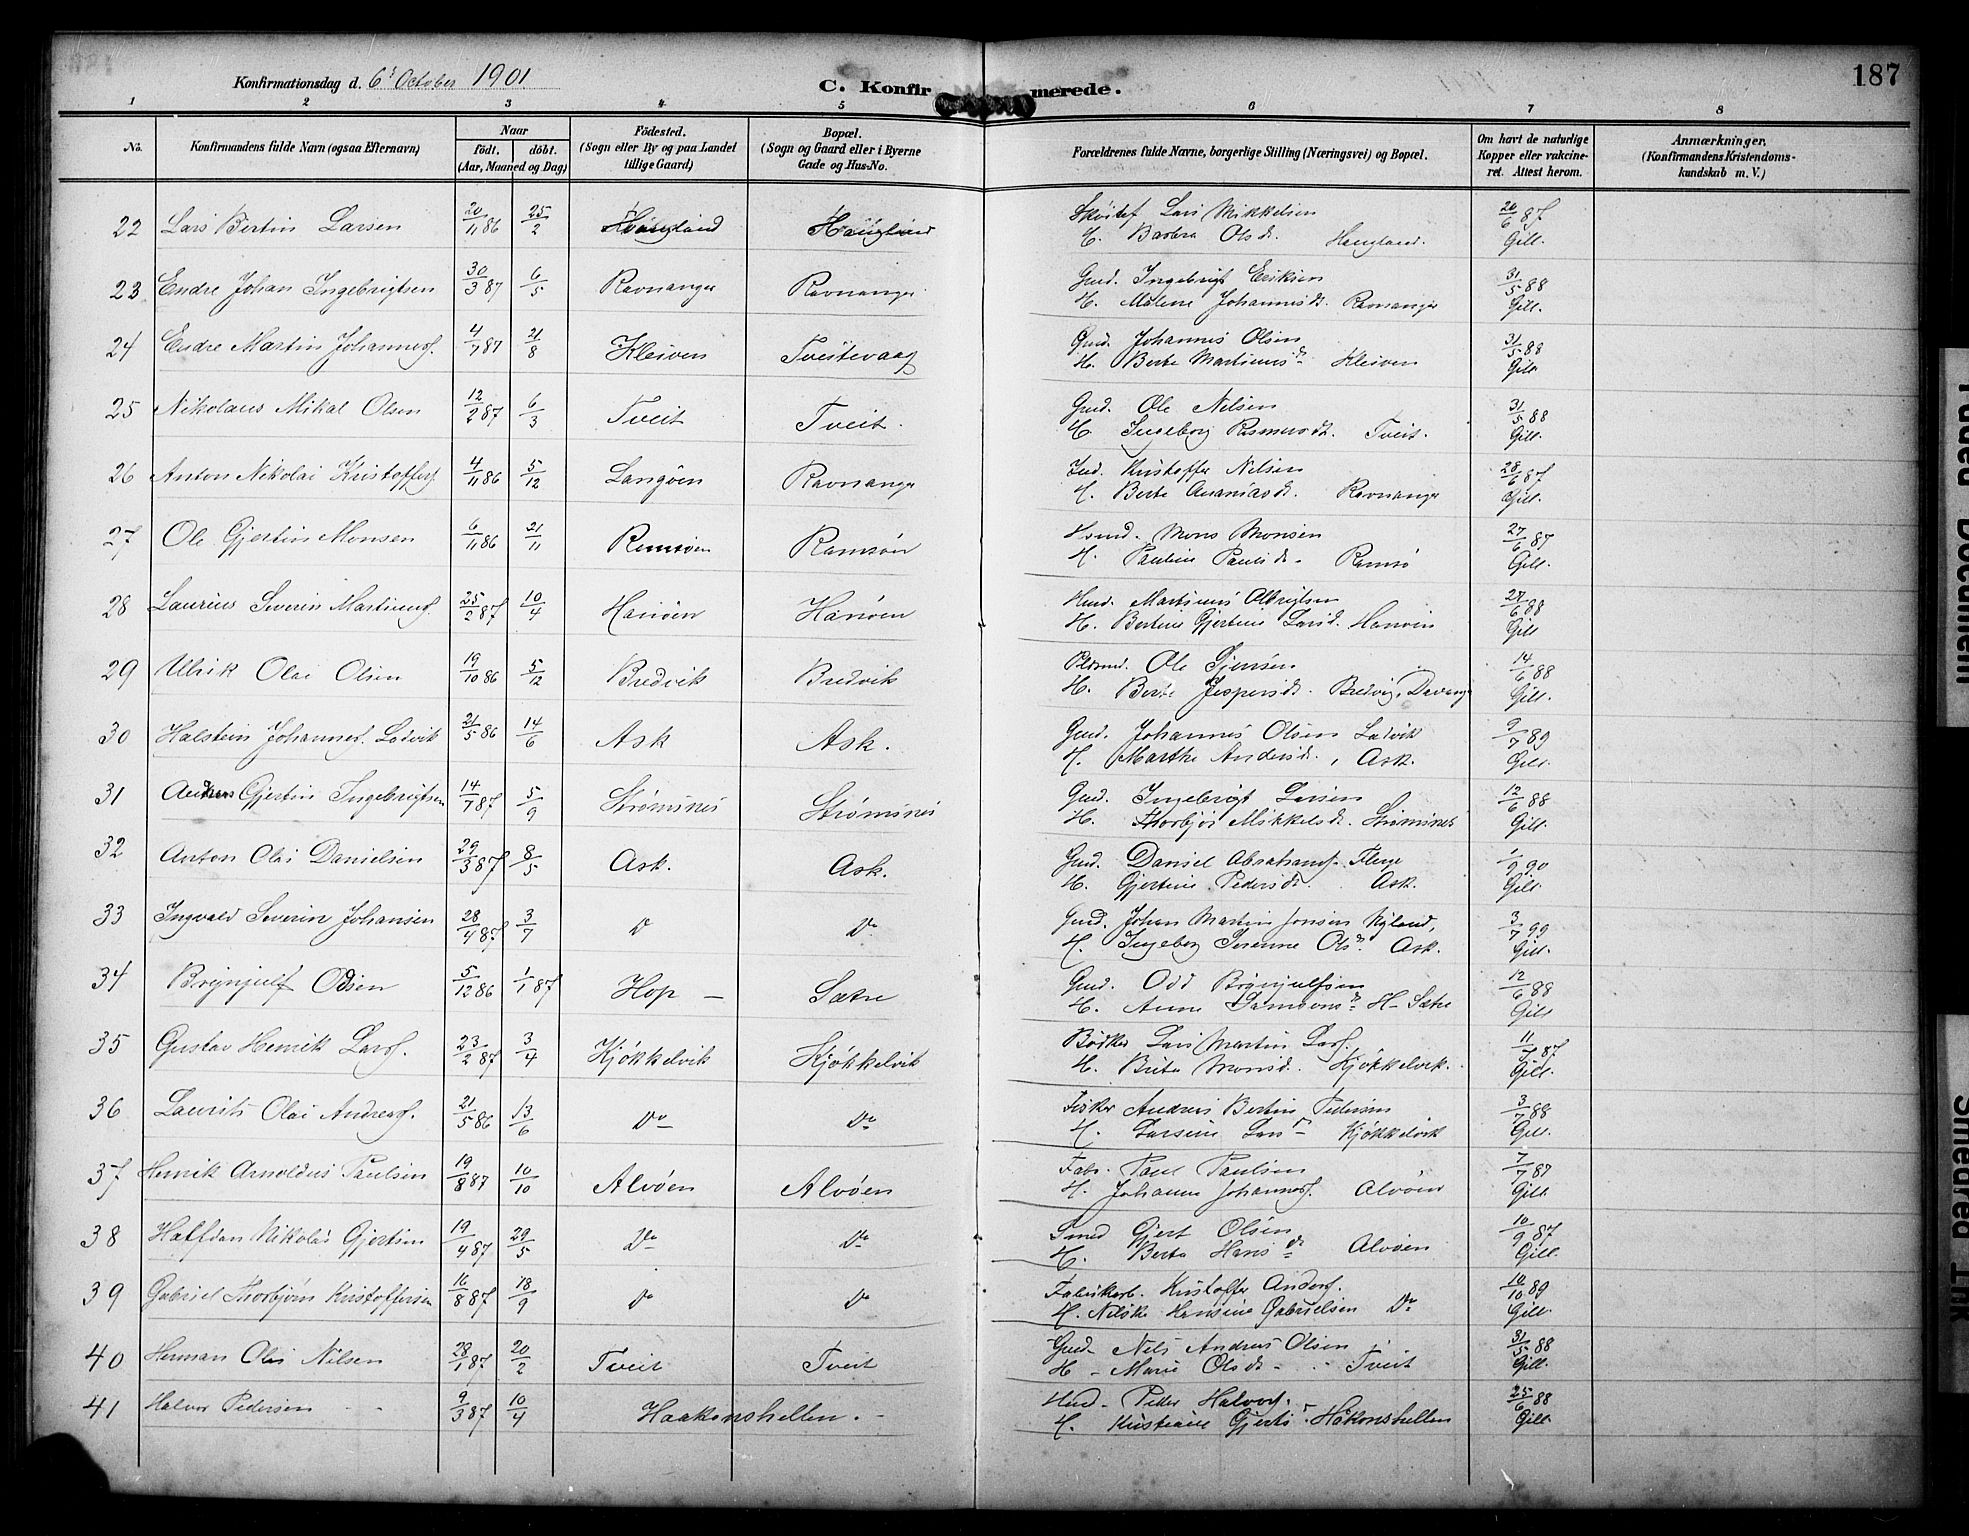 187
Konfirmationsdag d. 6t October 1901
C. Konfirmerede.
1 2 3 4 5 6 7 8
No. Konfirmandens fulde Navn (ogsaa Efternavn) Naar födt. döbt. (Aar, Maaned og Dag) Födested. (Sogn eller By og paa Landet tillige Gaard) Bopæl. (Sogn og Gaard eller i Byerne Gade og Hus-No. Forældrenes fulde Navne, borgerlige Stilling (Næringsvei) og Bopæl. Om havt de naturlige Kopper eller vakcineret. Attest herom. Anmærkninger. (Konfirmandens Kristendomskundskab m. V.)
22 Lars Bertin Larsen 20/11 86 25/2 Haugland Haugland Lars Mikkelsen H. Barbra Olsd. Haugland. 20/6 87 Gill.
23 Endre Johan Ingebrigtsen 30/3 87 6/5 Ravnanger Ravnanger Gmd. Ingebrigt Eriksen H. Malene Johannesd. Ravnanger 31/5 88 Gill.
24 Endre Martin Johannesf. 4/7 87 21/8 Kleiven Tveitevaag Gmd. Johannes Olsen H. Berte Martinusd. Kleiven 31/5 88 Gill
25 Nikolaus Mikal Olsen 12/2 87 6/3 Tveit Tveit. Gmd. Ole Nilsen H. Ingeborg Rasmusd. Tveit. 31/5 88 Gill.
26 Anton Nikolai Kristoffers. 4/11 86 5/12 Langøen Ravnanger Kristoffer Nilsen H. Berte Ananiasd. Ravnanger 28/6 87 Gill.
27 Ole Gjertin Monsen 6/11 86 21/11 Ramsøen Ramsøen Hsmd. Mons Monsen H. Pauline Paulsd. Ramsø 27/6 87 Gill.
28 Laurius Severin Martinusf. 25/2 87 10/4 Hanøen Hanøen Hmd. Martinus Olbrigtsen H. Bertine Gjertine Larsd. Hanøen 27/6 88 Gill
29 Ulrik Olai Olsen 19/10 86 5/12 Bredvik Bredvik Ole Jensen H. Berte Jespersd. Bredvig, Davanger 14/6 88 Gill.
30 Halstein Johannes. Ladvik 21/5 86 14/6 Ask Ask. Gmd. Johannes Olsen Ladvik H. Marthe Andersd., Ask. 9/7 89 Gill.
31 Anders Gjertin Ingebrigtsen 14/7 87 5/9 Strømsnes Strømsnes Gmd. Ingebrigt Larsen H. Thorbjør Mikkelsd. Strømsnes 12/6 88 Gill.
32 Anton Olai Danielsen 29/3 87 8/5 Ask. Ask. Gmd. Daniel Abrahamsf. Flege H. Gjertine Pedersd. Ask. 1/9 90 Gill.
33 Ingvald Severin Johansen 28/4 87 3/7 Do Do Gmd. Johan Martin Jonsen Myland, H. Ingeborg Serenne Olsd. Ask. 3/7 99 Gill.
34 Brynjulf Odsen 5/12 86 1/1 87 Hop — Sætre Gmd. Odd Brynjulfsen H. Anne Samsonsd. H- Sætre 12/6 88 Gill
35 Gustav Henrik Larsf. 23/2 87 3/4 Kjøkkelvik Kjøkkelvik Bødker Lars Martin Larsf. H. Brita Monsd. Kjøkkelvik. 11/7 87 Gill.
36 Laurits Olai Andreasf. 21/5 86 13/6 Do Do Fisker Andreas Bertin Pedersen H. Larsine Larsd. Kjøkkelvik 3/7 88 Gill.
37 Henrik Arnoldus Paulsen 19/8 87 10/10 Alvøen Alvøen Fabr. Paul Paulsen H. Johanne Johannesf. Alvøen 7/7 87 Gill.
38 Halfdan Nikolai Gjertsen 19/4 87 29/5 Do Do Smed Gjert Olsen H. Berta Hansd. Alvøen 10/9 87 Gill.
39 Gabriel Thorbjørn Kristoffersen 16/8 87 18/9 Do Do Fabrikarb. Kristoffer Andersf. H. Hansine Gabrielsen Do 10/10 89 Gill.
40 Herman Olai Nilsen 28/1 87 20/2 Tveit Tveit Gmd- Nils Andreas Olsen H- Marie Olsd- Tveit 31/5 88 Gill.
41 Halvor Pedersen 9/3 87 10/4 Haakonshellen. Hmd- Peder Halvorf. H. Kristiane Gjertsd. Håkonshellen 25/6 88 Gill.
Faded Document
Smeared Ink